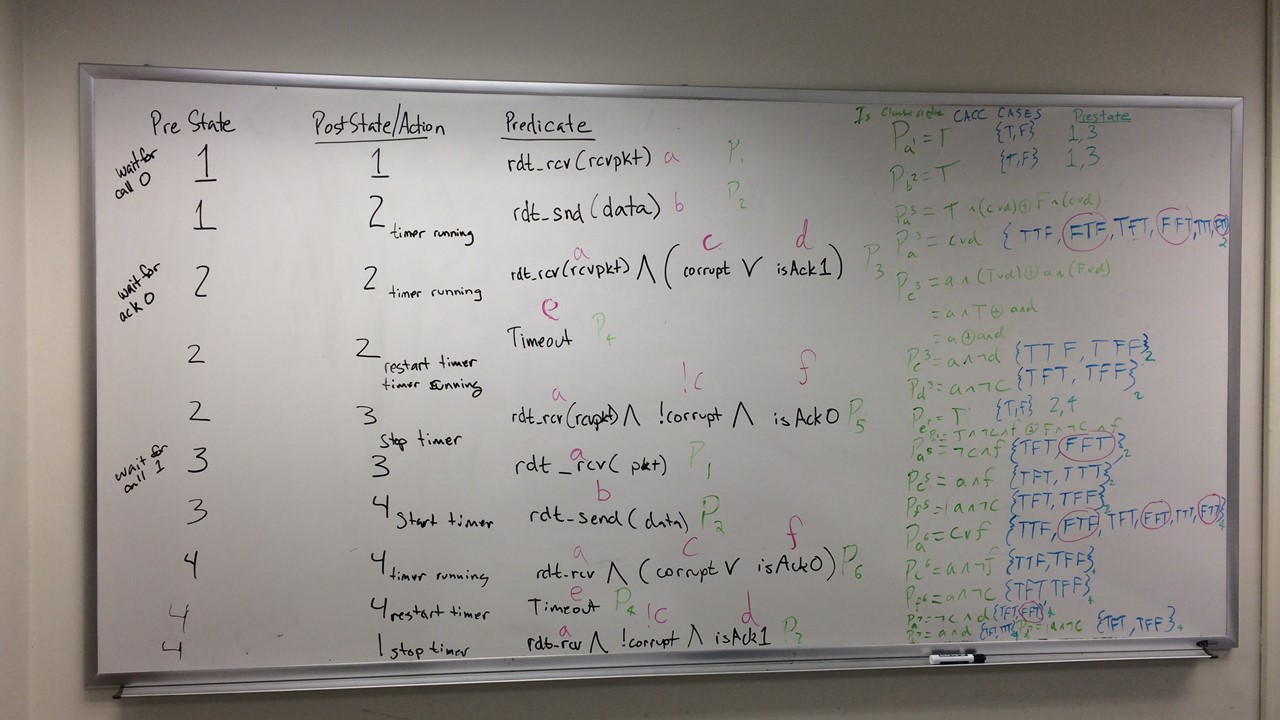 Pre State PostState/Action Predicate
wait for call 0 1 1 rdt_rcv(rcvpkt) a P1
1 2 timer running rdt_snd(data) b P2
wait for ack 0 2 2 timer running rdt_rcv(rcvpkt) ∧ (corrupt ∨ isAck1) P3
a c d
2 2 restart timer timer running Timeout P4
e
2 3 stop timer rdt_rcv(rcvpkt) ∧ !corrupt ∧ isAck0 P5
a !c f
wait for call 1 3 3 rdt_rcv(pkt) P1
a
3 4 start timer rdt_send(data) P2
b
4 4 timer running rdt-rcv ∧ (corrupt ∨ isAck0) P6
a c f
4 4 restart timer Timeout P4
e
4 1 stop timer rdt-rcv ∧ !corrupt ∧ isAck1 P7
a !c d
Is Clause CACC CASES Prestate
Pa1 = T {T,F} 1,3
Pb2 = T {T,F} 1,3
Pa3 = T ∧ (cvd) ⊕ F ∧ (cvd)
Pa3 = cvd { TTF, FTF, TFT, FFT, TTT, 2
Pc3 = a ∧ (Tvd) ⊕ a ∧ (Fvd)
= a ∧ T ⊕ a∧d
= a ⊕ a∧d
Pc3 = a∧¬d {TTF, TFF} 2
Pd3 = a∧¬c {TFT, TFF} 2
Pe4 = T {T,F} 2,4
T∧¬c∧f ⊕ F∧¬c∧f
Pa5 = ¬c∧f {TFT, FFT} 2
Pc5 = a∧f {TFT, TTT} 2
Pf5 = a∧¬c {TFT, TFF} 2
Pa6 = cvf {TTF, FTF, TFT, FFT, TTT, FTT} 4
Pc6 = a∧¬f {TTF, TFF} 4
Pf6 = a∧¬c {TFT TFF} 4
Pa7 = ¬c∧d {TFT, FFT} 4
Pc7 = a∧d {TFT, TTT} 4 Pd7 = a∧¬c {TFT, TFF} 4